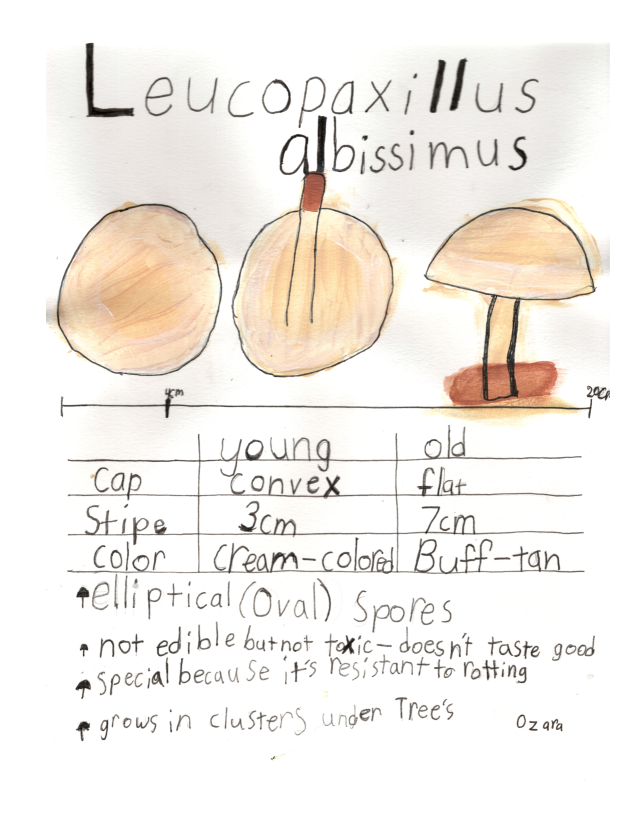 Leucopaxillus
albissimus
4cm 20cm
young old
Cap convex flat
Stipe 3cm 7cm
color cream-colored Buff-tan
elliptical (Oval) Spores
not edible but not toxic - doesn't taste good
special because it's resistant to rotting
grows in clusters under Tree's
Ozara